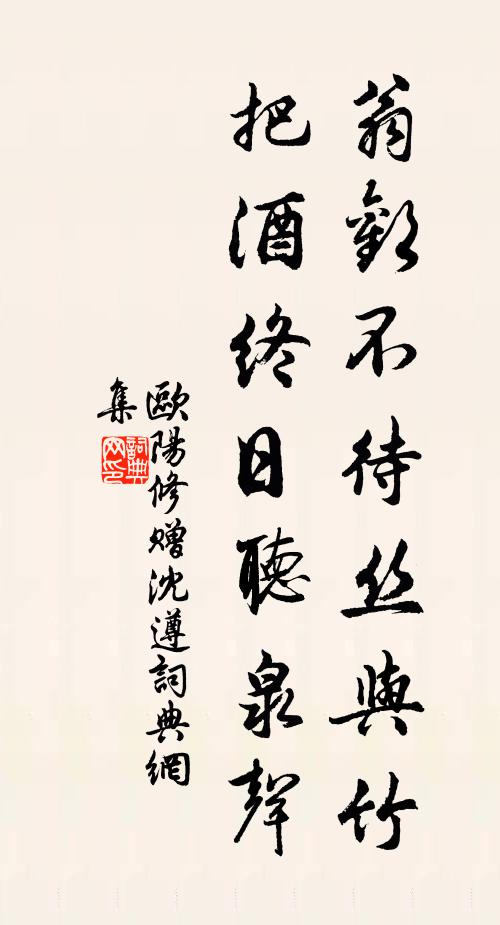 翁歡不待丝與竹
把酒終日聽泉聲
歐陽修赠沈遵詞典網
集
詞典
网印